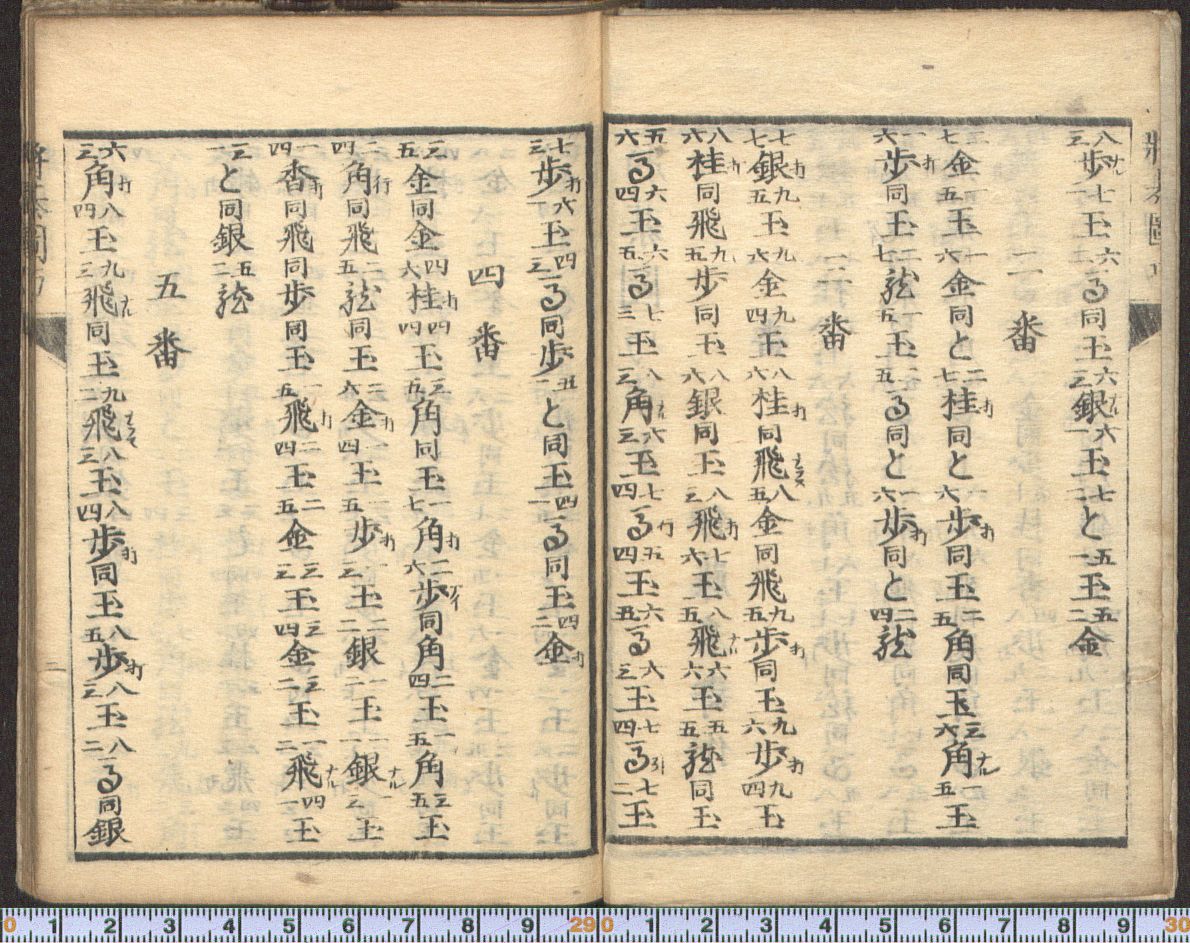 八三歩ナル七二玉六一馬同玉六三銀ナル六一玉七二と五一玉五二金
二番
三七金一五玉一六金同と二七桂打同と一六歩打同玉二五角同玉三六角ナル一五玉
一六歩打同玉二七龍一五玉二五馬同と一六歩打同と二四龍
三番
七七銀打九五玉九六金九四玉八六桂打同飛ナラズ八五金同飛九五歩打同玉九六歩打九四玉
八六桂打同飛九五歩同玉八六銀同玉八三飛打七六玉八五飛ナル六六玉五五龍同玉
五六馬六四玉六五馬七三玉八三角ナル六三玉七四馬行五四玉六五馬六三玉七四馬引七二玉
七三歩打六一玉四三馬同歩五一と同玉四一馬同玉四二金打
四番
三五金同金四六桂打四四玉三五角同玉一七角打二六歩アイ同角二四玉一五角三五玉
二四角行同飛二五龍同玉三六金打一四玉一五歩打一三玉二二銀一二玉一一銀ナル一二玉
一四香打同飛同歩同玉一五飛打二四玉二五金三三玉三四金三二玉一二飛ナル四一玉
三一と同銀五二龍
五番
六三角打八四玉九三飛ナル同玉九二飛ナラズ八三玉八四歩打同玉八五歩打八三玉八二馬同銀